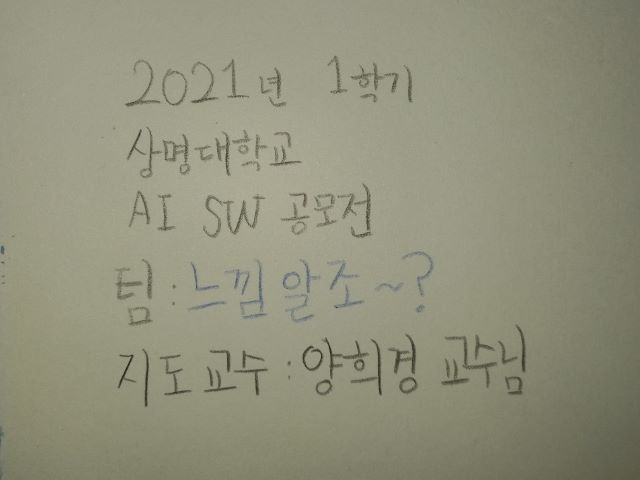 2021년 1학기
상명대학교
AI SW 공모전
팀:느낌알조~?
지도교수:양희경 교수님